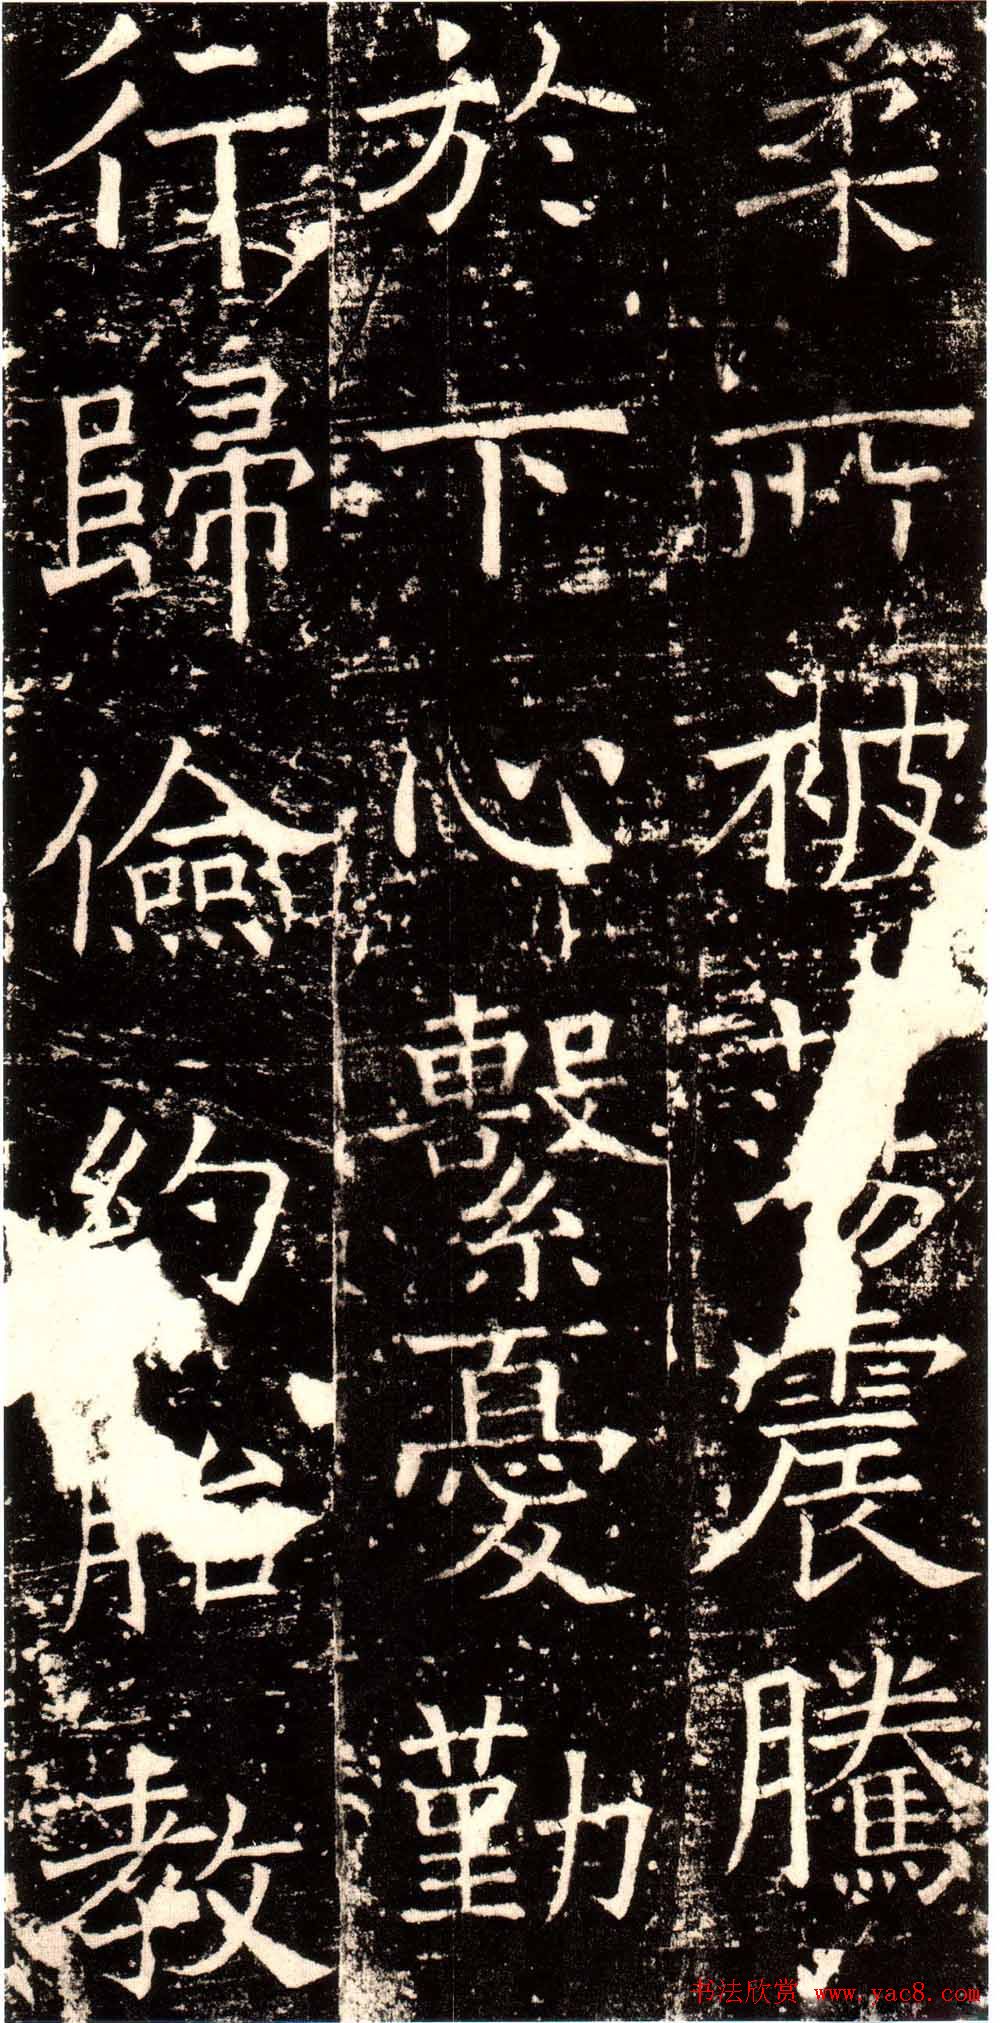 柔所被蕩震騰
於下心繫憂勤
行歸儉約胎教
书法欣赏 www.yac8.com